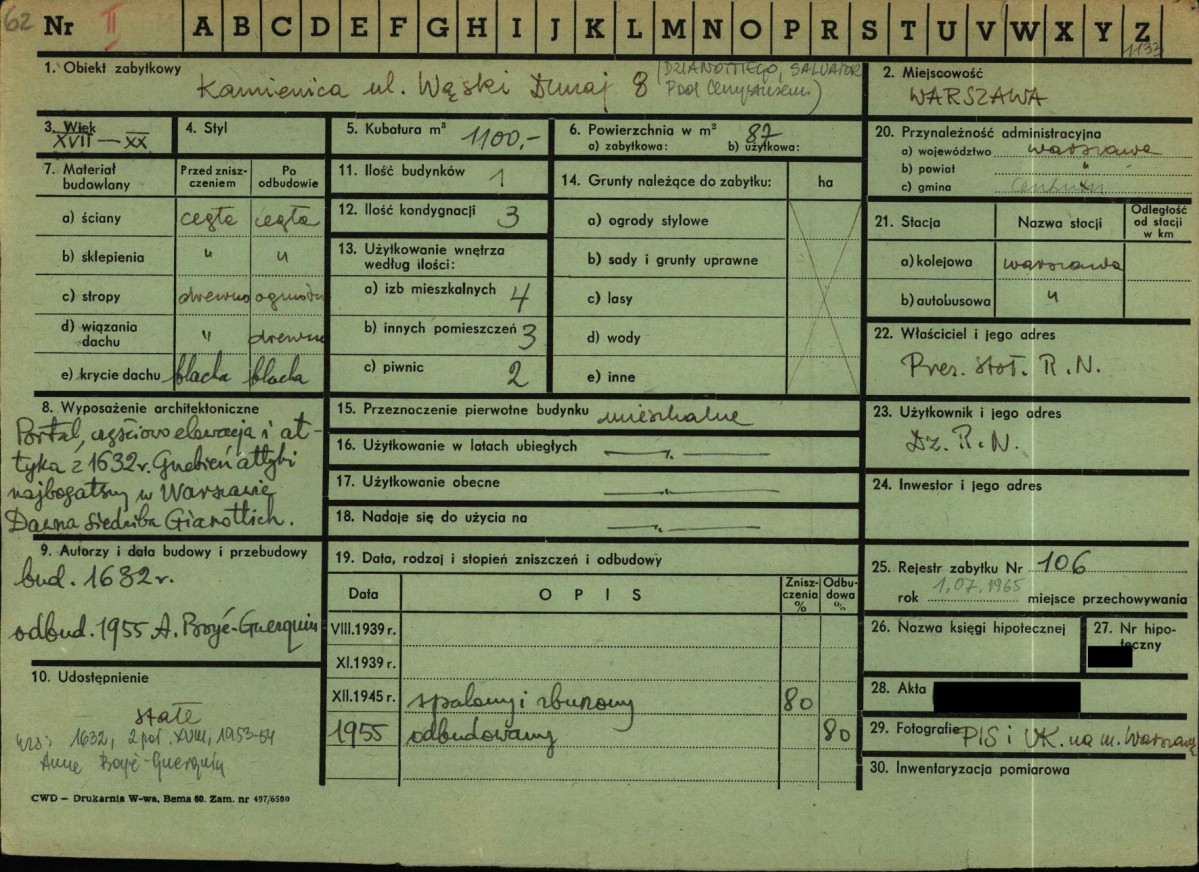 62 Nr II A B C D E F G H I J K L M N O P R S T U V W X Y Z
1133
1. Obiekt zabytkowy
Kamienica ul. Wąski Dunaj 8 (DZIANOTTIEGO, SALVATOR
Pod )
2. Miejscowość
WARSZAWA
3. Wiek
XVII — XX
4. Styl
5. Kubatura m³ 1100,-
6. Powierzchnia w m² 87
a) zabytkowa: b) użytkowa:
7. Materiał budowlany
Przed zniszczeniem
Po odbudowie
a) ściany cegła cegła
b) sklepienia " "
c) stropy drewno
d) wiązania dachu " drewno
e) krycie dachu blacha blacha
8. Wyposażenie architektoniczne
Portal, częściowo elewacja i at-
tyka z 1632 r. Grzebień attyki
najbogatszy w Warszawie
Dawna siedziba Gianottich.
9. Autorzy i data budowy i przebudowy
bud. 1632 r.
odbud. 1955 A. Boyé-Guerquin
10. Udostępnienie
stałe
wzs: 1632, 2 poł. XVIII, 1953-54
Anna Boyé-Guerquin
CWD — Drukarnia W-wa, Bema 60. Zam. nr 497/6500
11. Ilość budynków 1
12. Ilość kondygnacji 3
13. Użytkowanie wnętrza
według ilości:
a) izb mieszkalnych 4
b) innych pomieszczeń 3
c) piwnic 2
14. Grunty należące do zabytku: ha
a) ogrody stylowe
b) sady i grunty uprawne
c) lasy
d) wody
e) inne
15. Przeznaczenie pierwotne budynku mieszkalne
16. Użytkowanie w latach ubiegłych
17. Użytkowanie obecne
18. Nadaje się do użycia na
19. Data, rodzaj i stopień zniszczeń i odbudowy
Data OPIS Zniszczenia % Odbudowa %
VIII.1939 r.
XI.1939 r.
XII.1945 r. spalony i zburzony 80
1955 odbudowany 80
20. Przynależność administracyjna
a) województwo warszawa
b) powiat "
c) gmina Centrum
21. Stacja Nazwa stacji Odległość od stacji w km
a) kolejowa warszawa
b) autobusowa "
22. Właściciel i jego adres
Prez. Stoł. R.N.
23. Użytkownik i jego adres
Dz. R.N.
24. Inwestor i jego adres
25. Rejestr zabytku Nr 106
rok 1.07.1965 miejsce przechowywania
26. Nazwa księgi hipotecznej
27. Nr hipoteczny
28. Akta
29. Fotografie PIS i UK. na m. Warszawę
30. Inwentaryzacja pomiarowa